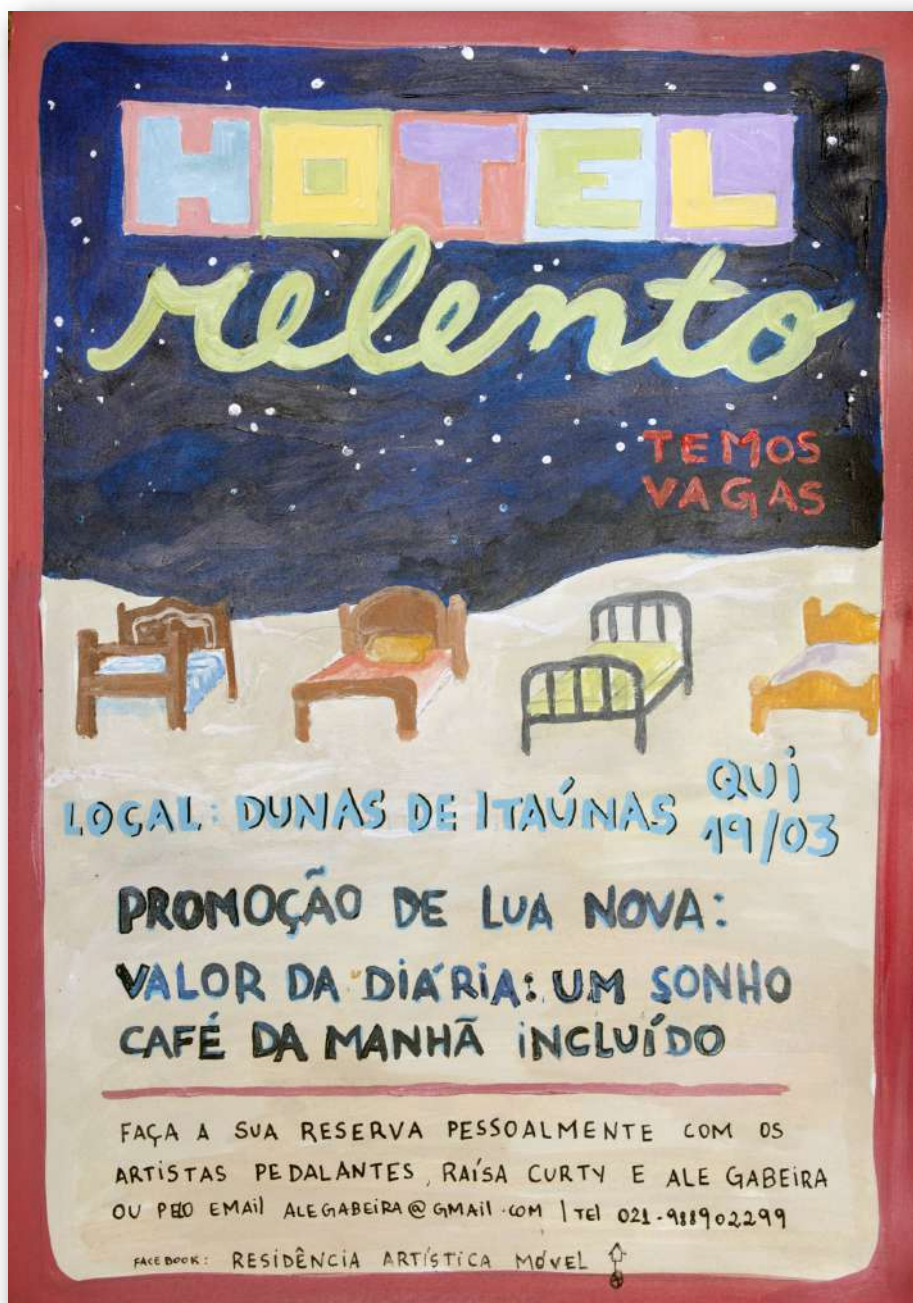 HOTEL
relento
TEMOS
VAGAS
LOCAL: DUNAS DE ITAÚNAS
QUI
19/03
PROMOÇÃO DE LUA NOVA:
VALOR DA DIÁRIA: UM SONHO
CAFÉ DA MANHÃ INCLUÍDO
FAÇA A SUA RESERVA PESSOALMENTE COM OS
ARTISTAS PEDALANTES, RAÍSA CURTY E ALE GABEIRA
OU PELO EMAIL ALEGABEIRA@GMAIL.COM | TEL 021-988902299
FACEBOOK: RESIDÊNCIA ARTÍSTICA MÓVEL